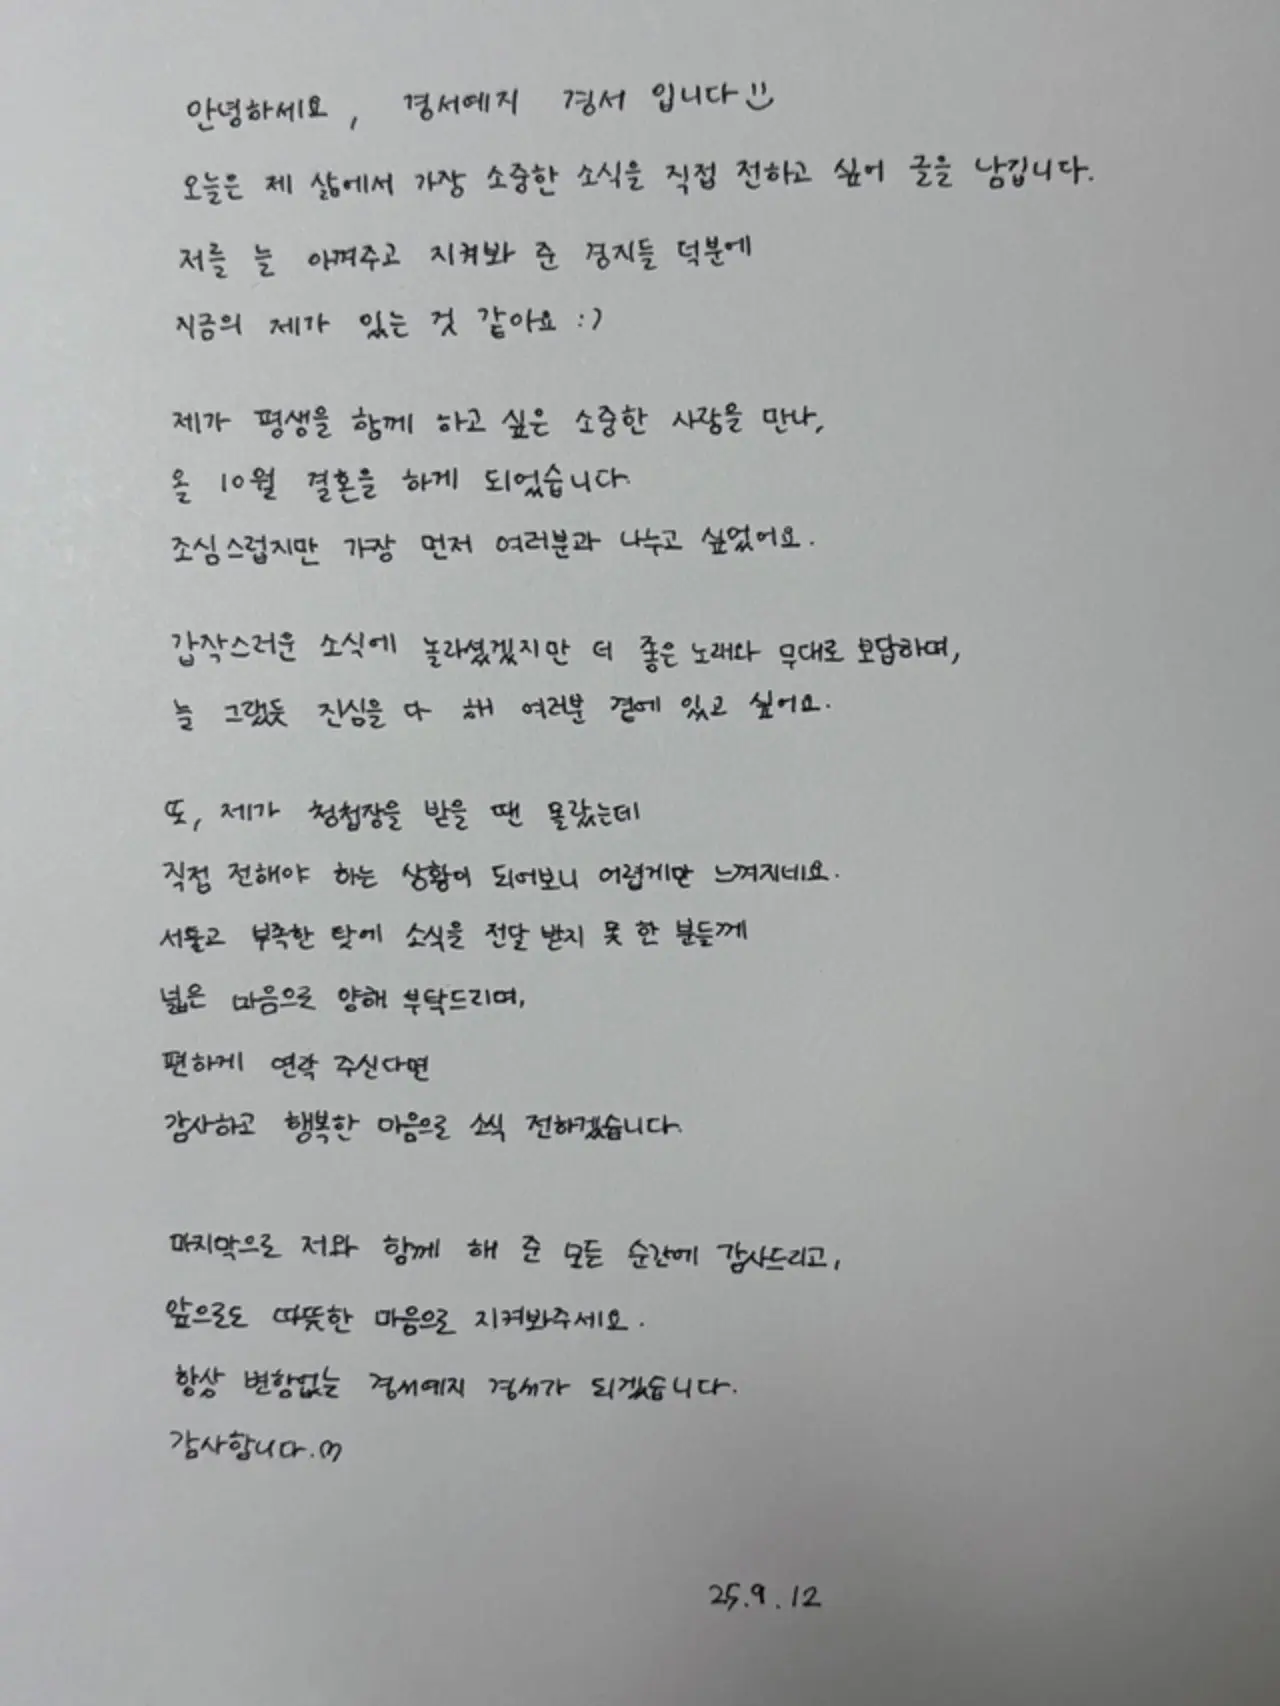 안녕하세요, 경서예지 경서 입니다
오늘은 제 삶에서 가장 소중한 소식을 직접 전하고 싶어 글을 남깁니다.
저를 늘 아껴주고 지켜봐 준 경지들 덕분에
지금의 제가 있는 것 같아요 :)
제가 평생을 함께 하고 싶은 소중한 사랑을 만나,
올 10월 결혼을 하게 되었습니다.
조심스럽지만 가장 먼저 여러분과 나누고 싶었어요.
갑작스러운 소식에 놀라셨겠지만 더 좋은 노래와 무대로 보답하며,
늘 그랬듯 진심을 다 해 여러분 곁에 있고 싶어요.
또, 제가 청첩장을 받을 땐 몰랐는데
직접 전해야 하는 상황이 되어보니 어렵게만 느껴지네요.
서툴고 부족한 탓에 소식을 전달 받지 못 한 분들께
넓은 마음으로 양해 부탁드리며,
편하게 연락 주신다면
감사하고 행복한 마음으로 소식 전하겠습니다.
마지막으로 저와 함께 해 준 모든 순간에 감사드리고,
앞으로도 따뜻한 마음으로 지켜봐주세요.
항상 변함없는 경서예지 경서가 되겠습니다.
감사합니다.
25.9.12